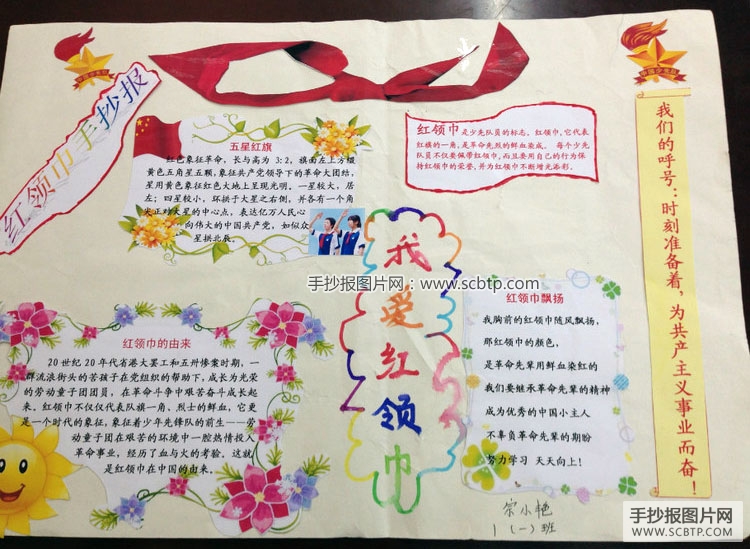 红领巾手抄报
五星红旗
红色象征革命，长与高为 3：2。旗面左上方缀
黄色五角星五颗，象征共产党领导下的革命大团结，
星用黄色象征红色大地上呈现光明。一星较大，居
左；四星较小，环拱于大星之右侧，并各有一个角
尖正对大星的中心点，表达亿万人民心
向伟大的中国共产党，如似众
星拱北辰。
红领巾是少先队员的标志。红领巾，它代表
红旗的一角，是革命先烈的鲜血染成。 每个少先
队员不仅要佩带红领巾，而且要用自己的行为保
持红领巾的荣誉，并为红领巾不断增光添彩。
我们的呼号：时刻准备着，为共产主义事业而奋！
手抄报图片网：www.scbtp.com
我爱红领巾
红领巾的由来
20 世纪 20 年代省港大罢工和五卅惨案时期，一
群流浪街头的苦孩子在党组织的帮助下，成长为光荣
的劳动童子团团员，在革命斗争中艰苦奋斗成长起
来。红领巾不仅仅代表队旗一角、烈士的鲜血，它更
是一个时代的象征，象征着少年先锋队的前生——劳
动童子团在艰苦的环境中一腔热情投入
革命事业，经历了血与火的考验。这就
是红领巾在中国的由来。
红领巾飘扬
我胸前的红领巾随风飘扬，
那红领巾的颜色，
是革命先辈用鲜血染红的
我们要继承革命先辈的精神
成为优秀的中国小主人
不辜负革命先辈的期盼
努力学习 天天向上！
宗小艳
1（一）班
手抄报图片网
WWW.SCBTP.COM